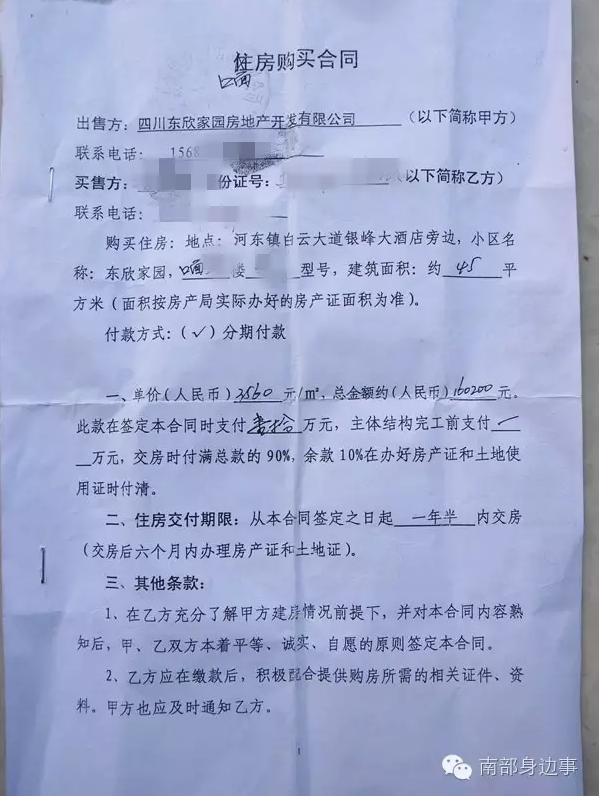 住房购买合同
出售方：四川东欣家园房地产开发有限公司 （以下简称甲方）
联系电话： 1568
买售方： 份证号： （以下简称乙方）
联系电话：
购买住房：地点：河东镇白云大道银峰大酒店旁边，小区名
称：东欣家园， 楼 型号，建筑面积：约 45 平
方米（面积按房产局实际办好的房产证面积为准）。
付款方式：（✓）分期付款
一、单价（人民币）3560 元/㎡，总金额约（人民币）160200 元。
此款在签定本合同时支付 壹拾 万元，主体结构完工前支付
万元，交房时付满总款的 90%，余款 10%在办好房产证和土地使
用证时付清。
二、住房交付期限：从本合同签定之日起 一年半 内交房
（交房后六个月内办理房产证和土地证）。
三、其他条款：
1、在乙方充分了解甲方建房情况前提下，并对本合同内容熟
知后，甲、乙双方本着平等、诚实、自愿的原则签定本合同。
2、乙方应在缴款后，积极配合提供购房所需的相关证件、资
料。甲方也应及时通知乙方。
1
南部身边事